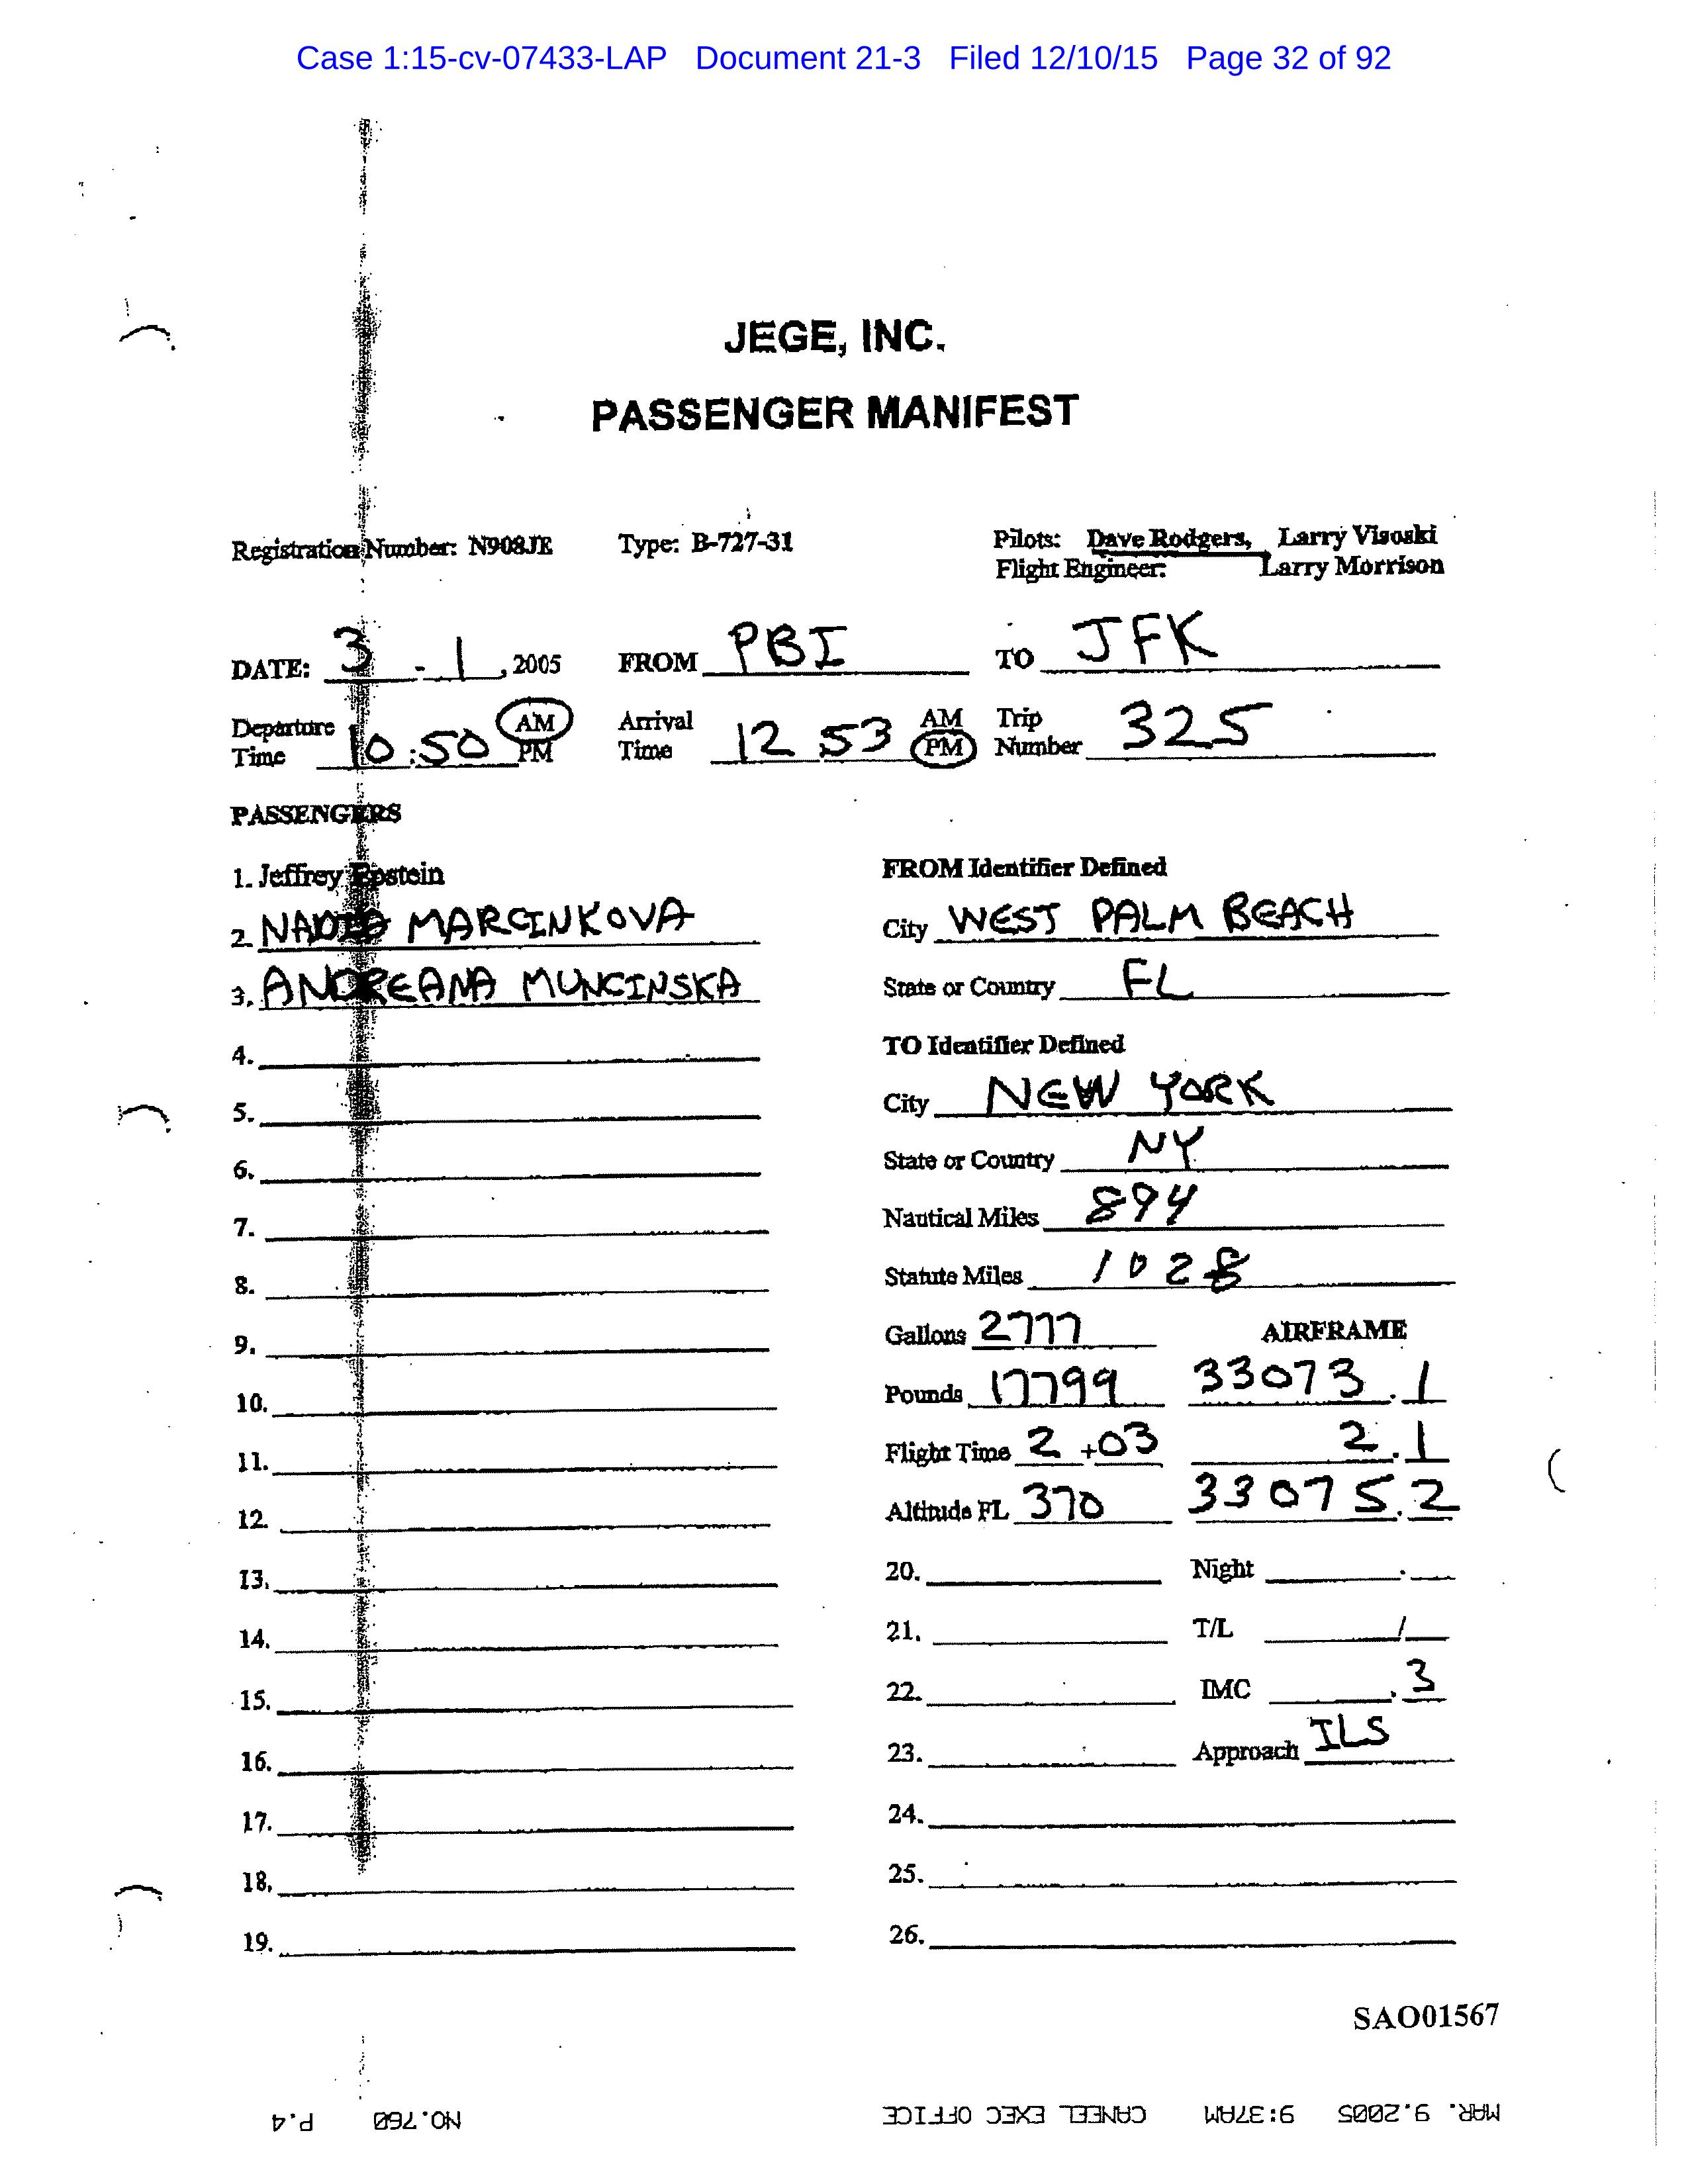 Case 1:15-cv-07433-LAP Document 21-3 Filed 12/10/15 Page 32 of 92
JEGE, INC.
PASSENGER MANIFEST
Registration Number: N908JE Type: B-727-31 Pilots: Dave Rodgers, Larry Visoski
Flight Engineer: Larry Morrison
DATE: 3 - 1, 2005 FROM PBI TO JFK
Departure Time 10:50 AM PM Arrival Time 12 53 AM PM Trip Number 325
PASSENGERS
1. Jeffrey Epstein
2. NADIA MARCINKOVA
3. ANDREANA MUNCINSKA
4.
5.
6.
7.
8.
9.
10.
11.
12.
13.
14.
15.
16.
17.
18.
19.
FROM Identifier Defined
City WEST PALM BEACH
State or Country FL
TO Identifier Defined
City NEW YORK
State or Country NY
Nautical Miles 894
Statute Miles 1028
Gallons 2777 AIRFRAME
Pounds 17799 33073.1
Flight Time 2 +03 2.1
Altitude FL 370 33075.2
20. Night .
21. T/L /
22. IMC .3
23. Approach ILS
24.
25.
26.
SAO01567
MAR. 9.2005 9:37AM CANEEL EXEC OFFICE NO.760 P.4